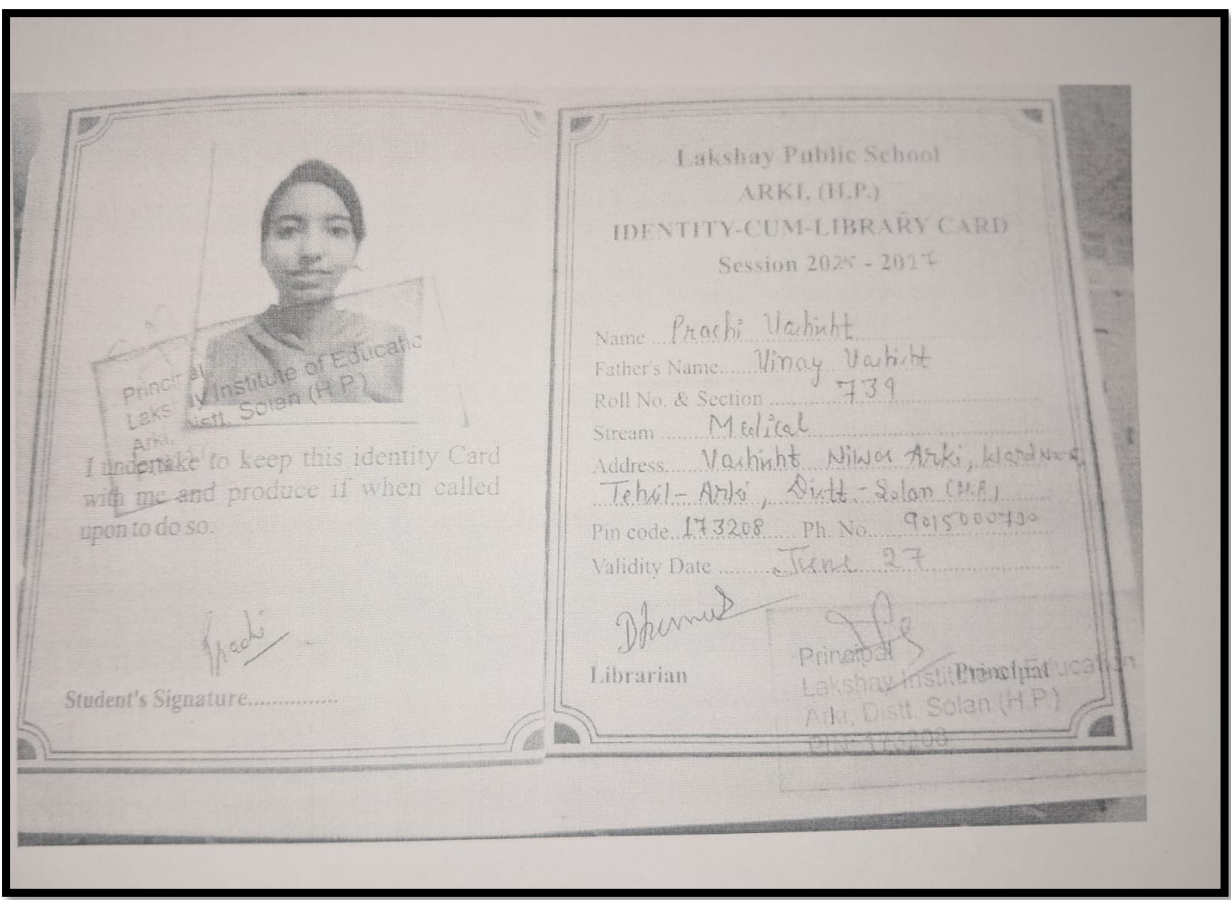 Principal
Lakshay Institute of Educatio
Arki, Distt. Solan (H.P.)
I undertake to keep this identity Card
with me and produce if when called
upon to do so.
Prachi
Student's Signature...............
Lakshay Public School
ARKI, (H.P.)
IDENTITY-CUM-LIBRARY CARD
Session 2025 - 2027
Name Prachi Vashisht
Father's Name. Vinay Vashisht
Roll No. & Section 739
Stream Medical
Address Vashisht Niwas Arki, Ward No.
Tehsil- Arki, Distt.- Solan (H.P.)
Pin code 173208 Ph. No.
Validity Date June 27
Librarian
Principal
Principal
Lakshay Institute of Education
Arki, Distt. Solan (H.P.)
PIN: 173208